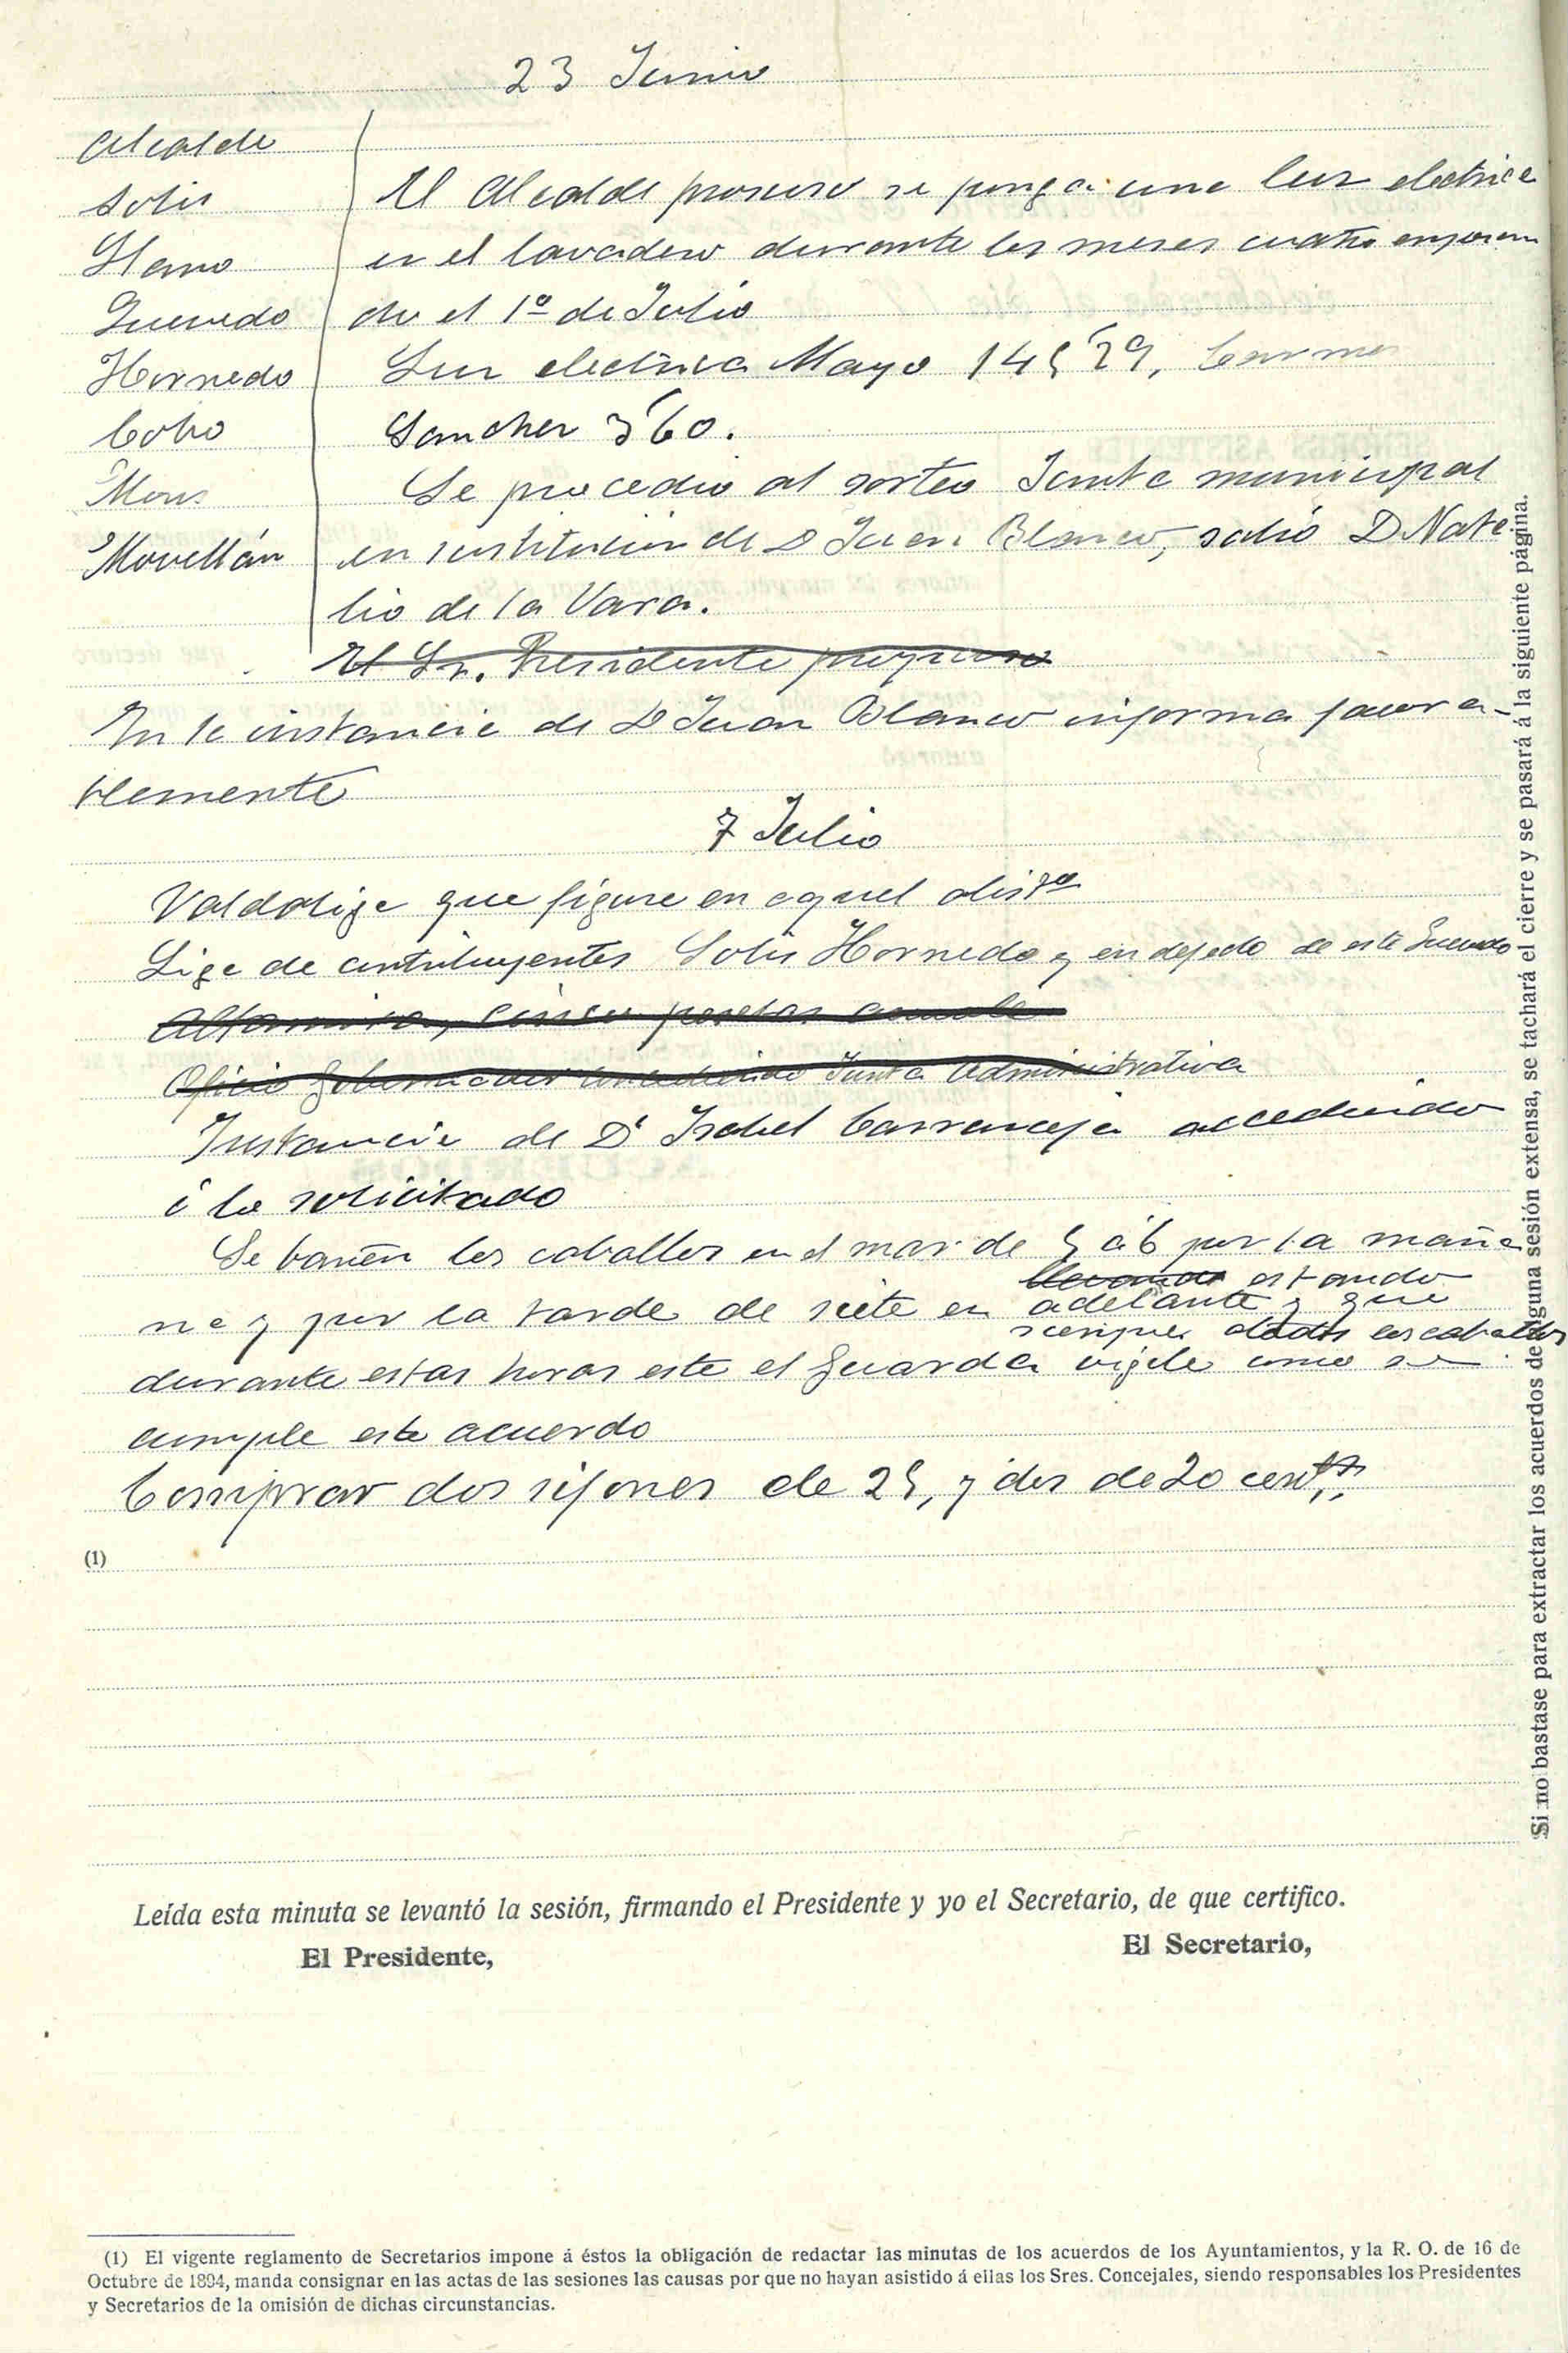 23 Junio
Alcalde
Solis
Llano
Quevedo
Hornedo
Cobo
Mons
Movellán
El Alcalde propuso se ponga una luz electrica
en el lavadero durante los meses cuatro empezan
do el 1º de Julio
Luz electrica Mayo 145'29, Carmen
Sanchez 3'60.
Se procedio al sorteo Junta municipal
en sustitución de D Juan Blanco, salió D Nata
lio de la Vara.
El Sr. Presidente propuso
En la instancia de D Juan Blanco informa favora-
blemente
7 Julio
Valdaliga que figure en aquel
Liga de contribuyentes Solis Hornedo y en defecto de este Quevedo
Altamira, cinco pesetas
Oficio Gobernador concediendo Junta Administrativa
Instancia de Dª Isabel Carranceja accediendo
á lo solicitado
Se bañen los caballos en el mar de 5 á 6 por la maña
na y por la tarde de siete en adelante y que
llevando estando
siempre atados los caballos
durante estas horas este el guarda vigile como se
cumple este acuerdo
Comprar dos sifones de 25, y dos de 20 cents.
(1)
Leída esta minuta se levantó la sesión, firmando el Presidente y yo el Secretario, de que certifico.
El Presidente,
El Secretario,
(1) El vigente reglamento de Secretarios impone á éstos la obligación de redactar las minutas de los acuerdos de los Ayuntamientos, y la R. O. de 16 de
Octubre de 1894, manda consignar en las actas de las sesiones las causas por que no hayan asistido á ellas los Sres. Concejales, siendo responsables los Presidentes
y Secretarios de la omisión de dichas circunstancias.
Si no bastase para extractar los acuerdos de alguna sesión extensa, se tachará el cierre y se pasará á la siguiente página.